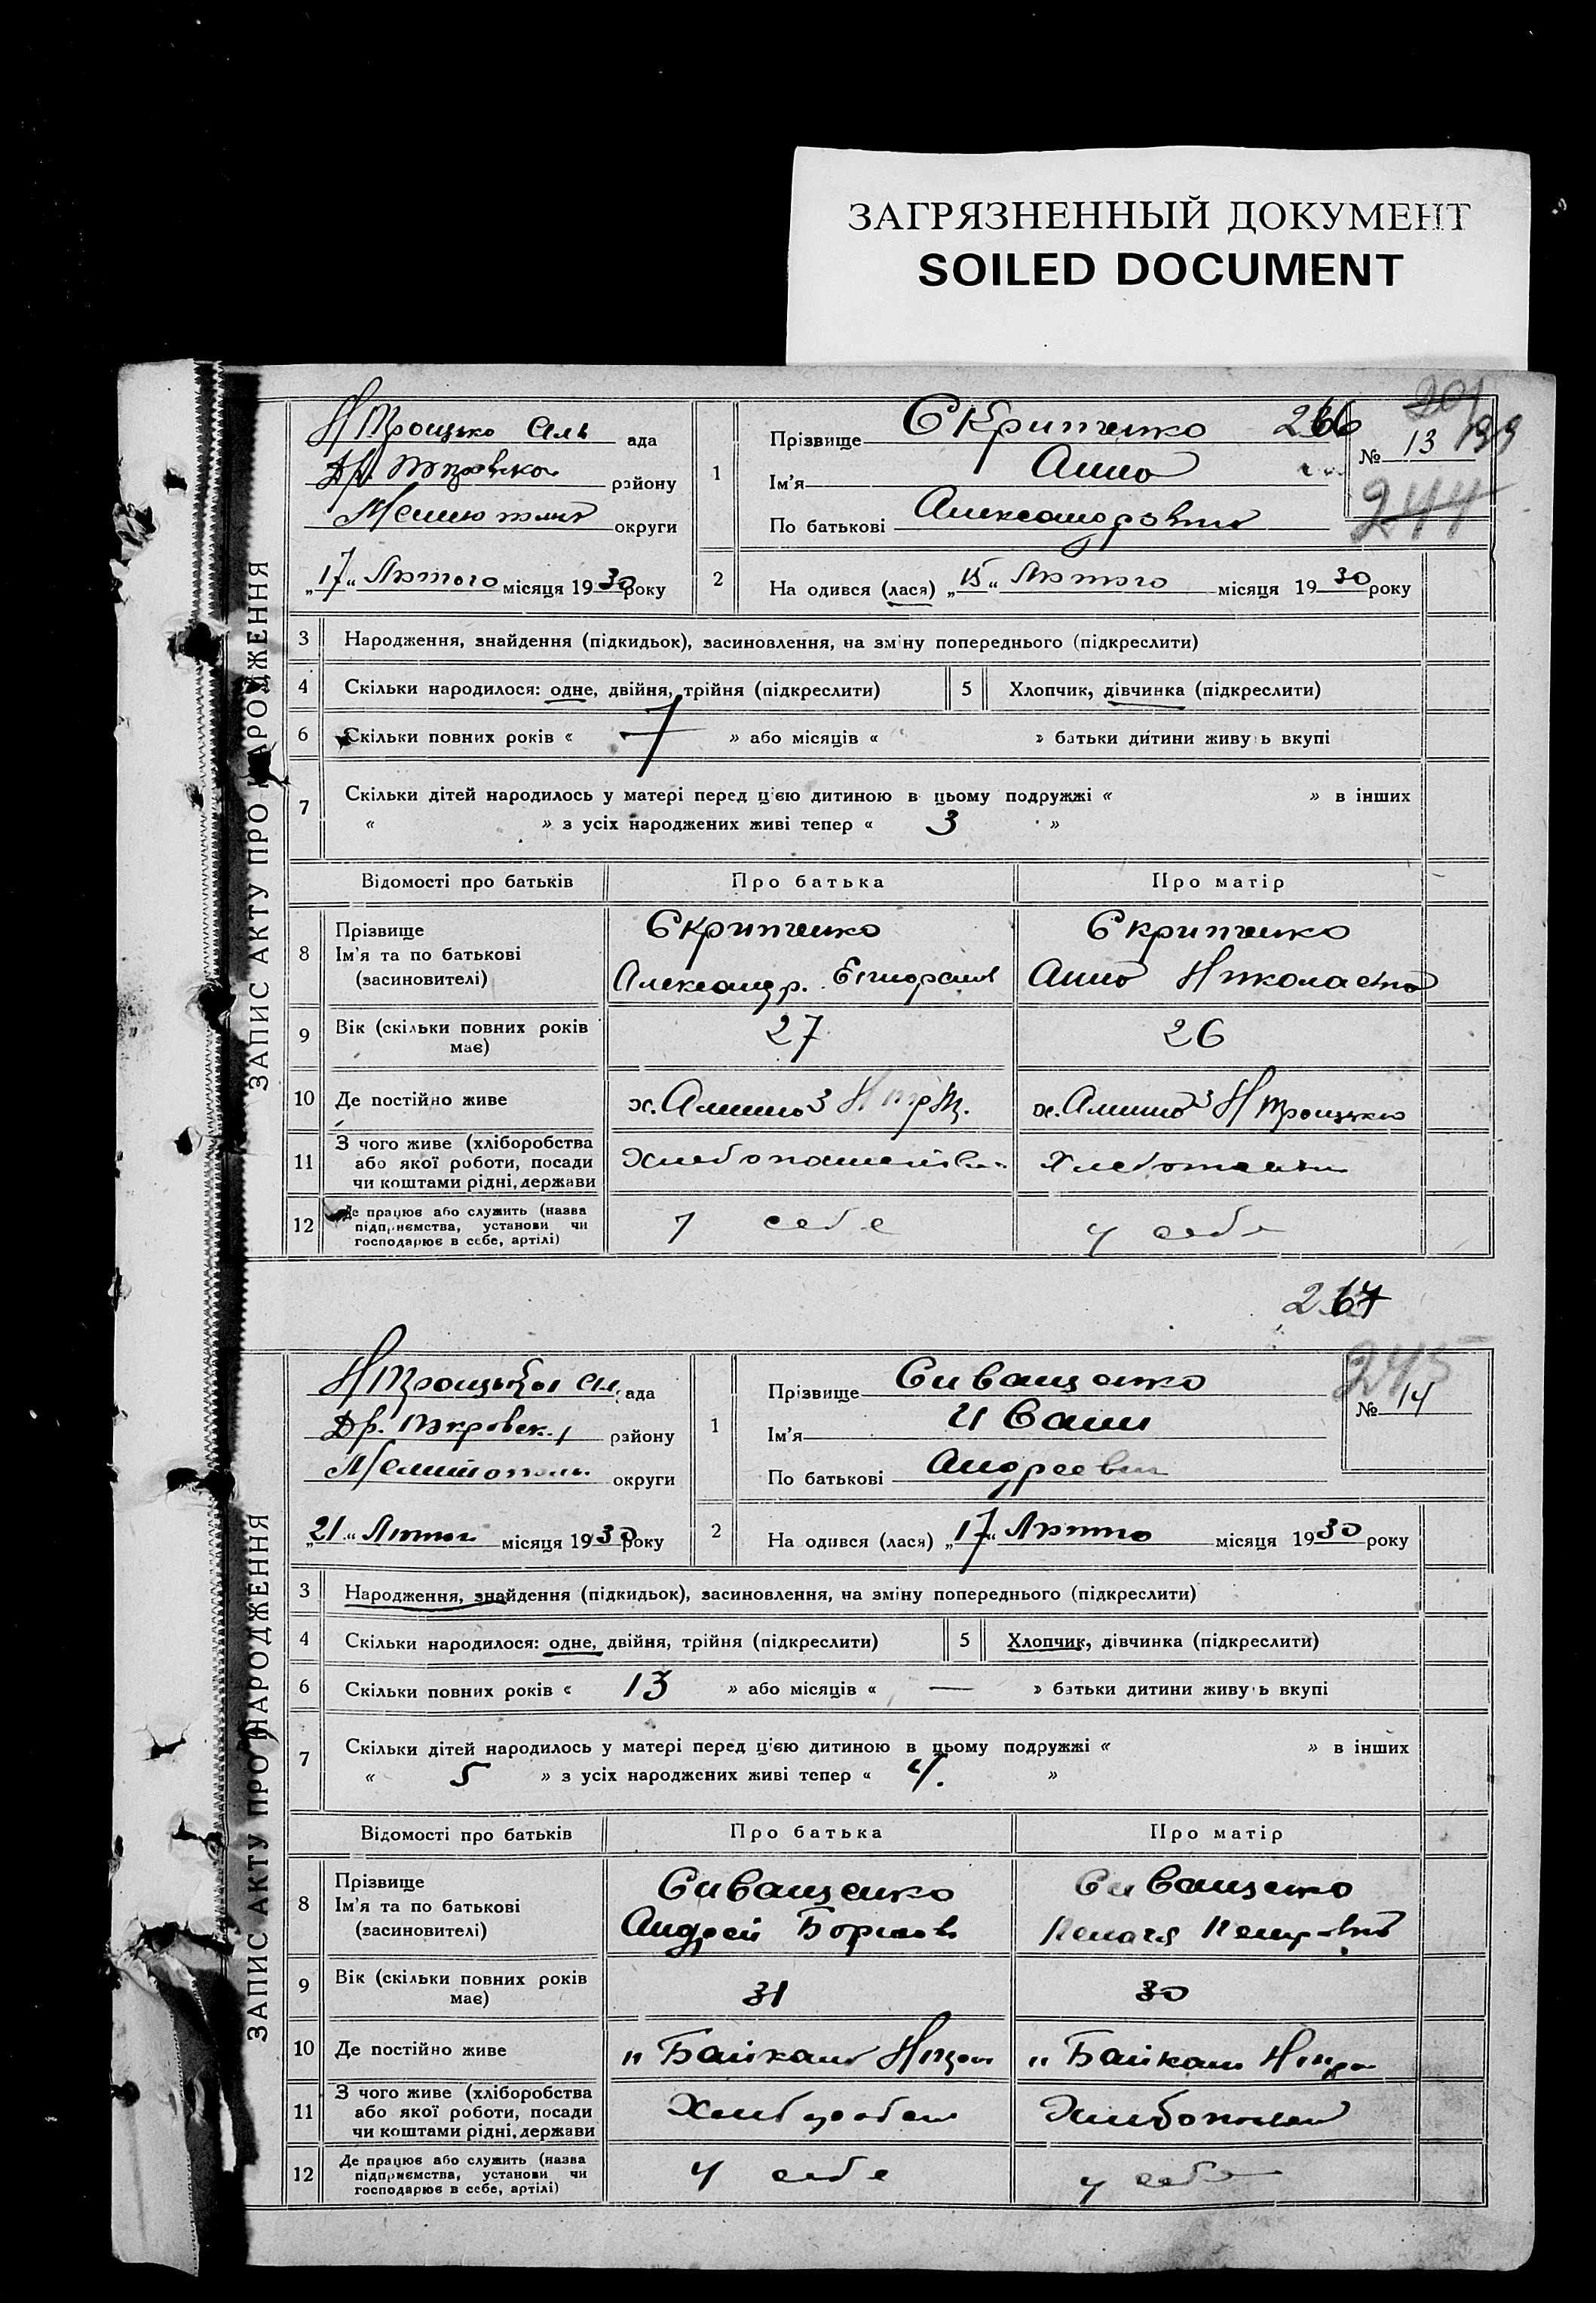 ЗАГРЯЗНЕННЫЙ ДОКУМЕНТ
SOILED DOCUMENT
ЗАПИС АКТУ ПРО НАРОДЖЕННЯ
НТроицько ада
району
округи
„17“ Лютого місяця 1930 року
1
Прізвище Скрипченко 266
Ім'я Анна
По батькові Александровна
№ 13
201
199
244
2 На одився (лася) „15“ Лютого місяця 1930 року
3 Народження, знайдення (підкидьок), засиновлення, на зміну попереднього (підкреслити)
4 Скільки народилося: одне, двійня, трійня (підкреслити) 5 Хлопчик, дівчинка (підкреслити)
6 Скільки повних років « 7 » або місяців « » батьки дитини живуть вкупі
7 Скільки дітей народилось у матері перед цією дитиною в цьому подружжі « » в інших
« » з усіх народжених живі тепер « 3 »
Відомості про батьків Про батька Про матір
8 Прізвище Скрипченко Скрипченко
Ім'я та по батькові
(засиновителі) Александр. Анна Николаевна
9 Вік (скільки повних років має) 27 26
10 Де постійно живе х. х. НТроицько
11 З чого живе (хліборобства
або якої роботи, посади
чи коштами рідні, держави
12 Де працює або служить (назва
підприємства, установи чи
господарює в себе, артілі) у себе у себе
267
ЗАПИС АКТУ ПРО НАРОДЖЕННЯ
НТроицько ада
Др. району
Мелитополь округи
„21“ місяця 1930 року
1
Прізвище Сиващенко
Ім'я Иван
По батькові Андреевич
245
№ 14
2 На одився (лася) „17“ місяця 1930 року
3 Народження, знайдення (підкидьок), засиновлення, на зміну попереднього (підкреслити)
4 Скільки народилося: одне, двійня, трійня (підкреслити) 5 Хлопчик, дівчинка (підкреслити)
6 Скільки повних років « 13 » або місяців « — » батьки дитини живуть вкупі
7 Скільки дітей народилось у матері перед цією дитиною в цьому подружжі « » в інших
« 5 » з усіх народжених живі тепер « 4. »
Відомості про батьків Про батька Про матір
8 Прізвище Сиващенко Сиващенко
Ім'я та по батькові
(засиновителі) Андрей Петровна
9 Вік (скільки повних років має) 31 30
10 Де постійно живе
11 З чого живе (хліборобства
або якої роботи, посади
чи коштами рідні, держави
12 Де працює або служить (назва
підприємства, установи чи
господарює в себе, артілі) у себе у себе